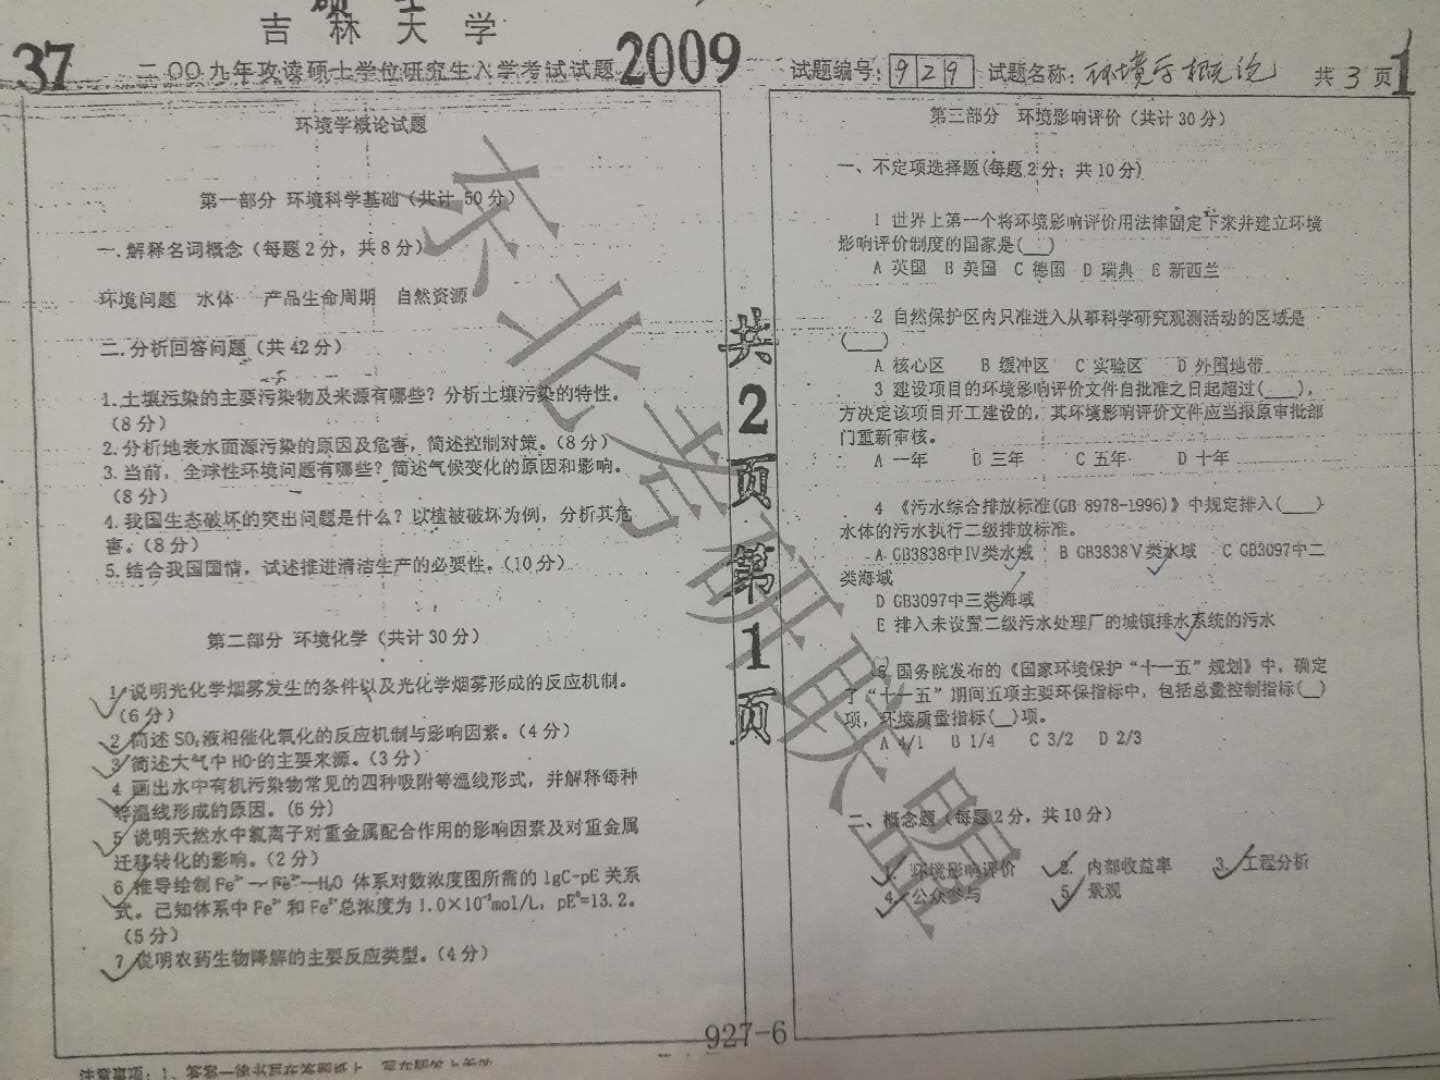 硕 士
吉 林 大 学
37
二〇〇九年攻读硕士学位研究生入学考试试题
2009
试题编号: 929 试题名称: 环境学概论 共 3 页
1
环境学概论试题
第一部分 环境科学基础(共计 50 分)
一.解释名词概念(每题 2 分,共 8 分)
环境问题 水体 产品生命周期 自然资源
二.分析回答问题(共 42 分)
1.土壤污染的主要污染物及来源有哪些?分析土壤污染的特性。
(8 分)
2.分析地表水面源污染的原因及危害,简述控制对策。(8 分)
3.当前,全球性环境问题有哪些?简述气候变化的原因和影响。
(8 分)
4.我国生态破坏的突出问题是什么?以植被破坏为例,分析其危
害。(8 分)
5.结合我国国情,试述推进清洁生产的必要性。(10 分)
第二部分 环境化学(共计 30 分)
1 说明光化学烟雾发生的条件以及光化学烟雾形成的反应机制。
(6 分)
2 简述 SO₂液相催化氧化的反应机制与影响因素。(4 分)
3 简述大气中 HO·的主要来源。(3 分)
4 画出水中有机污染物常见的四种吸附等温线形式,并解释每种
等温线形成的原因。(6 分)
5 说明天然水中氯离子对重金属配合作用的影响因素及对重金属
迁移转化的影响。(2 分)
6 推导绘制 Fe³⁺—Fe²⁺—H₂O 体系对数浓度图所需的 lgC-pE 关系
式。已知体系中 Fe³⁺和 Fe²⁺总浓度为 1.0×10⁻³mol/L,pE⁰=13.2。
(5 分)
7 说明农药生物降解的主要反应类型。(4 分)
共2页第1页
第三部分 环境影响评价(共计 30 分)
一、不定项选择题(每题 2 分;共 10 分)
1 世界上第一个将环境影响评价用法律固定下来并建立环境
影响评价制度的国家是(__)
A 英国 B 美国 C 德国 D 瑞典 E 新西兰
2 自然保护区内只准进入从事科学研究观测活动的区域是
(___)
A 核心区 B 缓冲区 C 实验区 D 外围地带
3 建设项目的环境影响评价文件自批准之日起超过(___),
方决定该项目开工建设的,其环境影响评价文件应当报原审批部
门重新审核。
A 一年 B 三年 C 五年 D 十年
4 《污水综合排放标准(GB 8978-1996)》中规定排入(___)
水体的污水执行二级排放标准。
A GB3838中IV类水域 B GB3838V类水域 C GB3097中二
类海域
D GB3097中三类海域
E 排入未设置二级污水处理厂的城镇排水系统的污水
5 国务院发布的《国家环境保护“十一五”规划》中,确定
了“十一五”期间五项主要环保指标中,包括总量控制指标(__)
项,环境质量指标(__)项。
A 4/1 B 1/4 C 3/2 D 2/3
二、概念题(每题 2 分,共 10 分)
1. 环境影响评价 2. 内部收益率 3. 工程分析
4. 公众参与 5. 景观
东北考研联盟
927-6
注意事项:1、答案一律书写在答题纸上